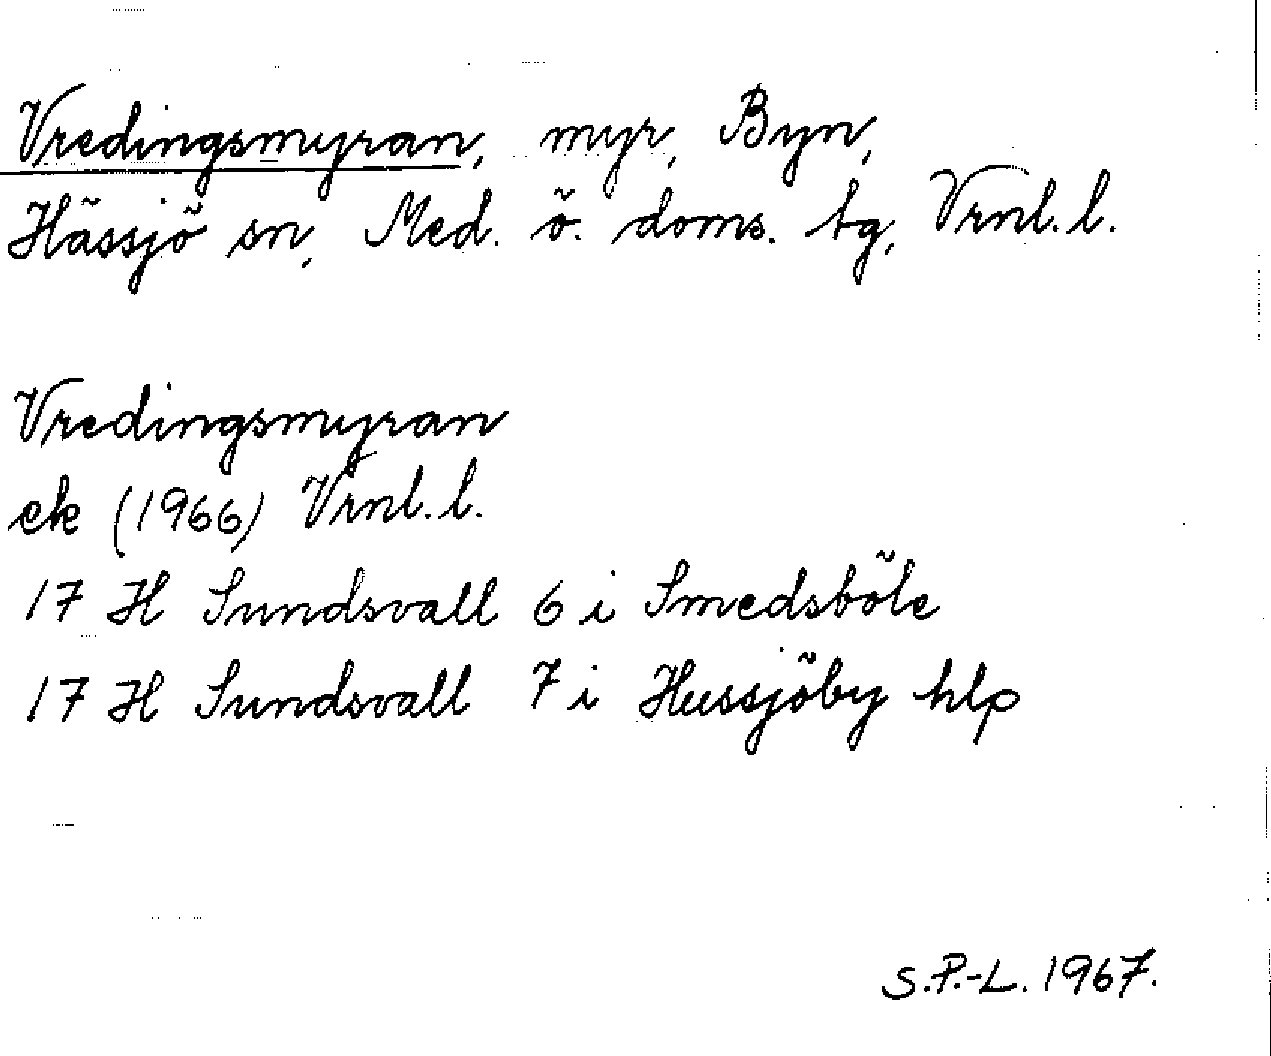 Vredingsmyran, myr, Byn,
Hässjö sn, Med. ö. doms. tg, Vrnl.l.
Vredingsmyran
ek (1966) Vrnl.l.
17 H Sundsvall 6 i Smedsböle
17 H Sundsvall 7 i Hussjöby hlp
S.P.-L. 1967.